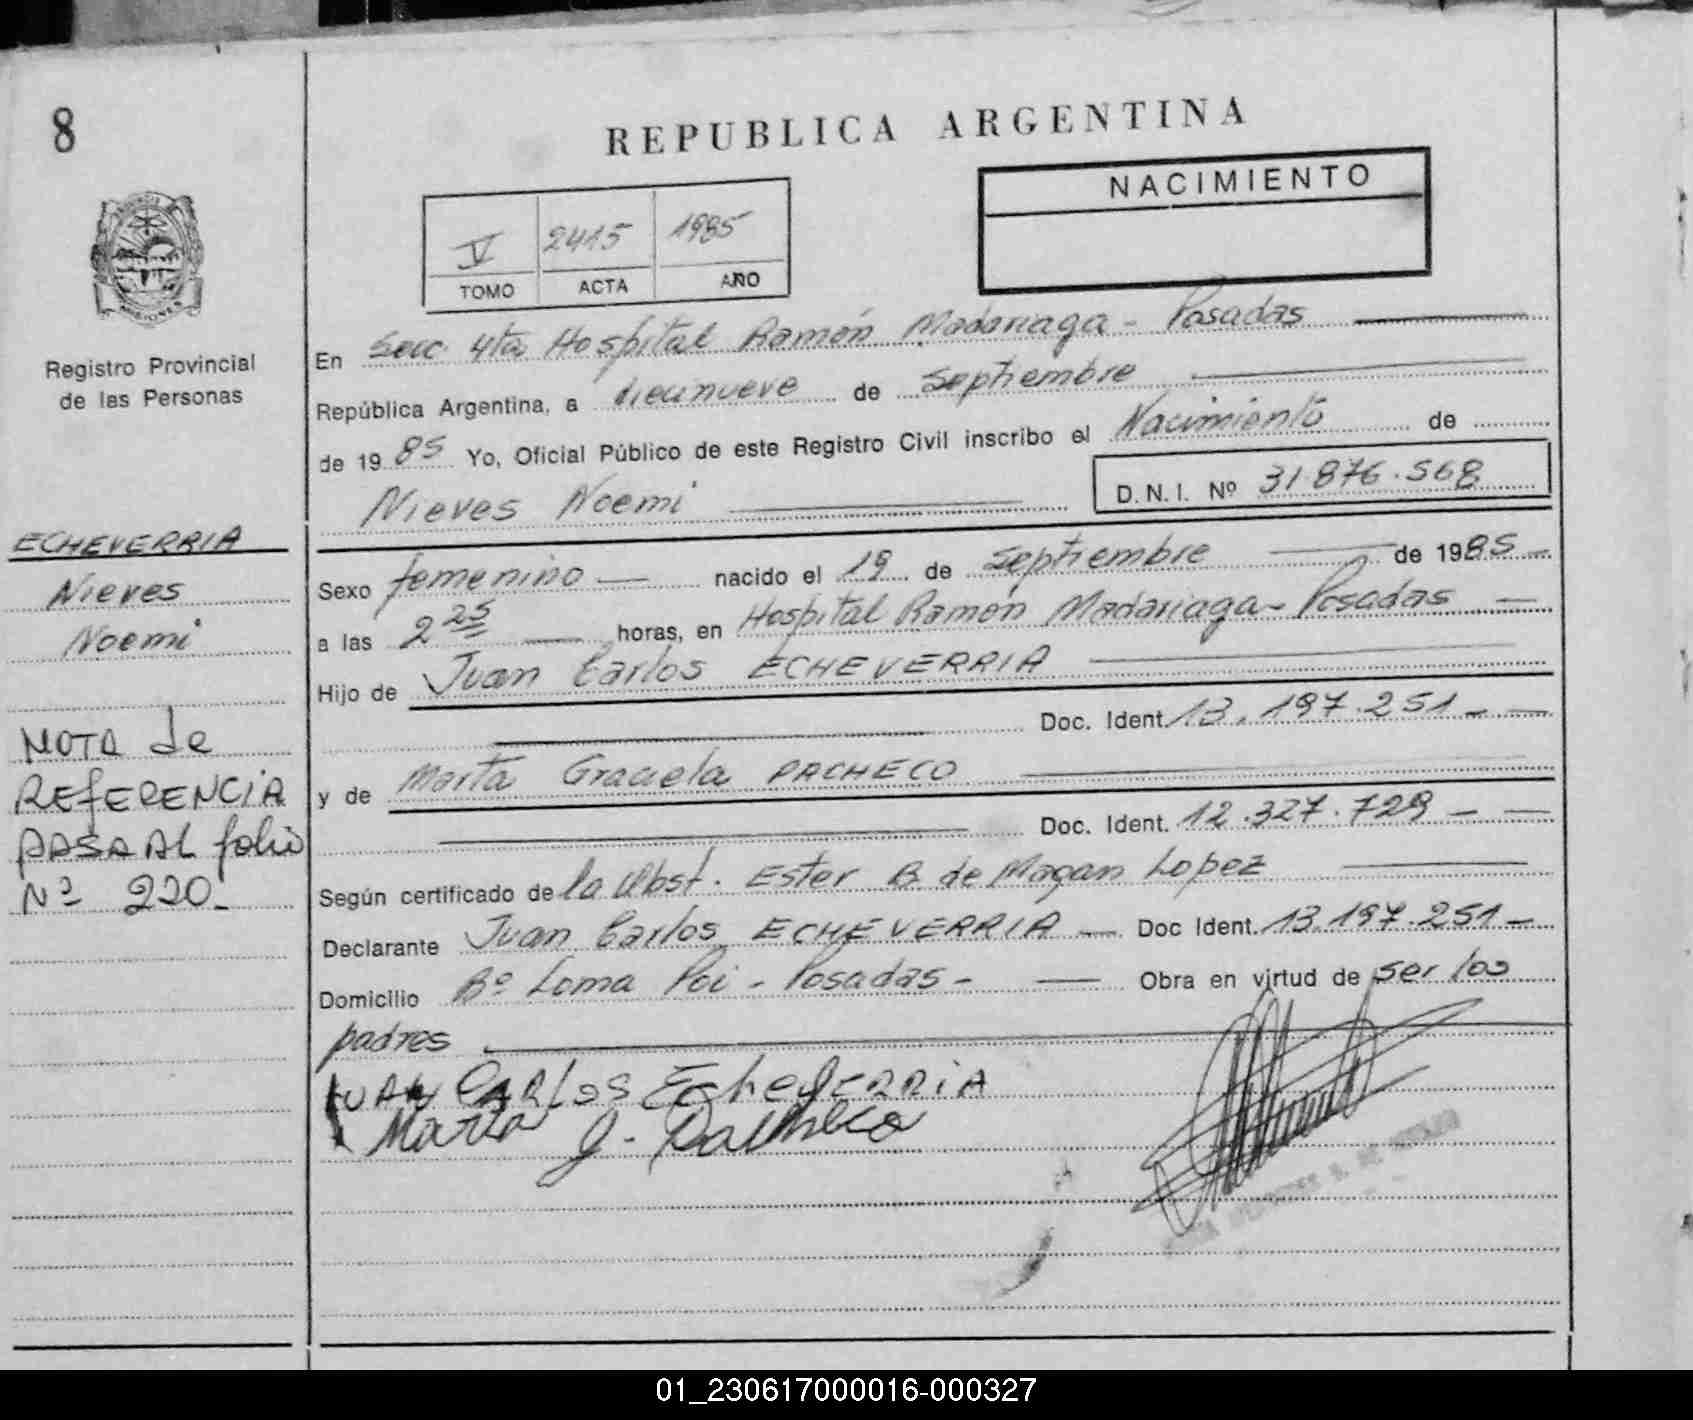 8
REPUBLICA ARGENTINA
NACIMIENTO
V 2415 1985
TOMO ACTA AÑO
MISIONES
Registro Provincial
de las Personas
En Secc 4ta Hospital Ramón Madariaga - Posadas
República Argentina, a diecinueve de septiembre
de 1985 Yo, Oficial Público de este Registro Civil inscribo el Nacimiento de
Nieves Noemi D.N.I. Nº 31.876.568
ECHEVERRIA
Nieves
Noemi
Sexo femenino nacido el 19 de septiembre de 1985
a las 2 25 horas, en Hospital Ramón Madariaga - Posadas
Hijo de Juan Carlos ECHEVERRIA
Doc. Ident. 13.197.251
y de Marta Graciela PACHECO
Doc. Ident. 12.327.729
NOTA de
REFERENCIA
PASA AL folio
Nº 220
Según certificado de la Obst. Ester B. de Magan Lopez
Declarante Juan Carlos ECHEVERRIA Doc Ident. 13.197.251
Domicilio Bº Loma Poi - Posadas - Obra en virtud de ser los
padres
JUAN CARLOS EchevERRiA
Marta G. Pacheco
01_230617000016-000327